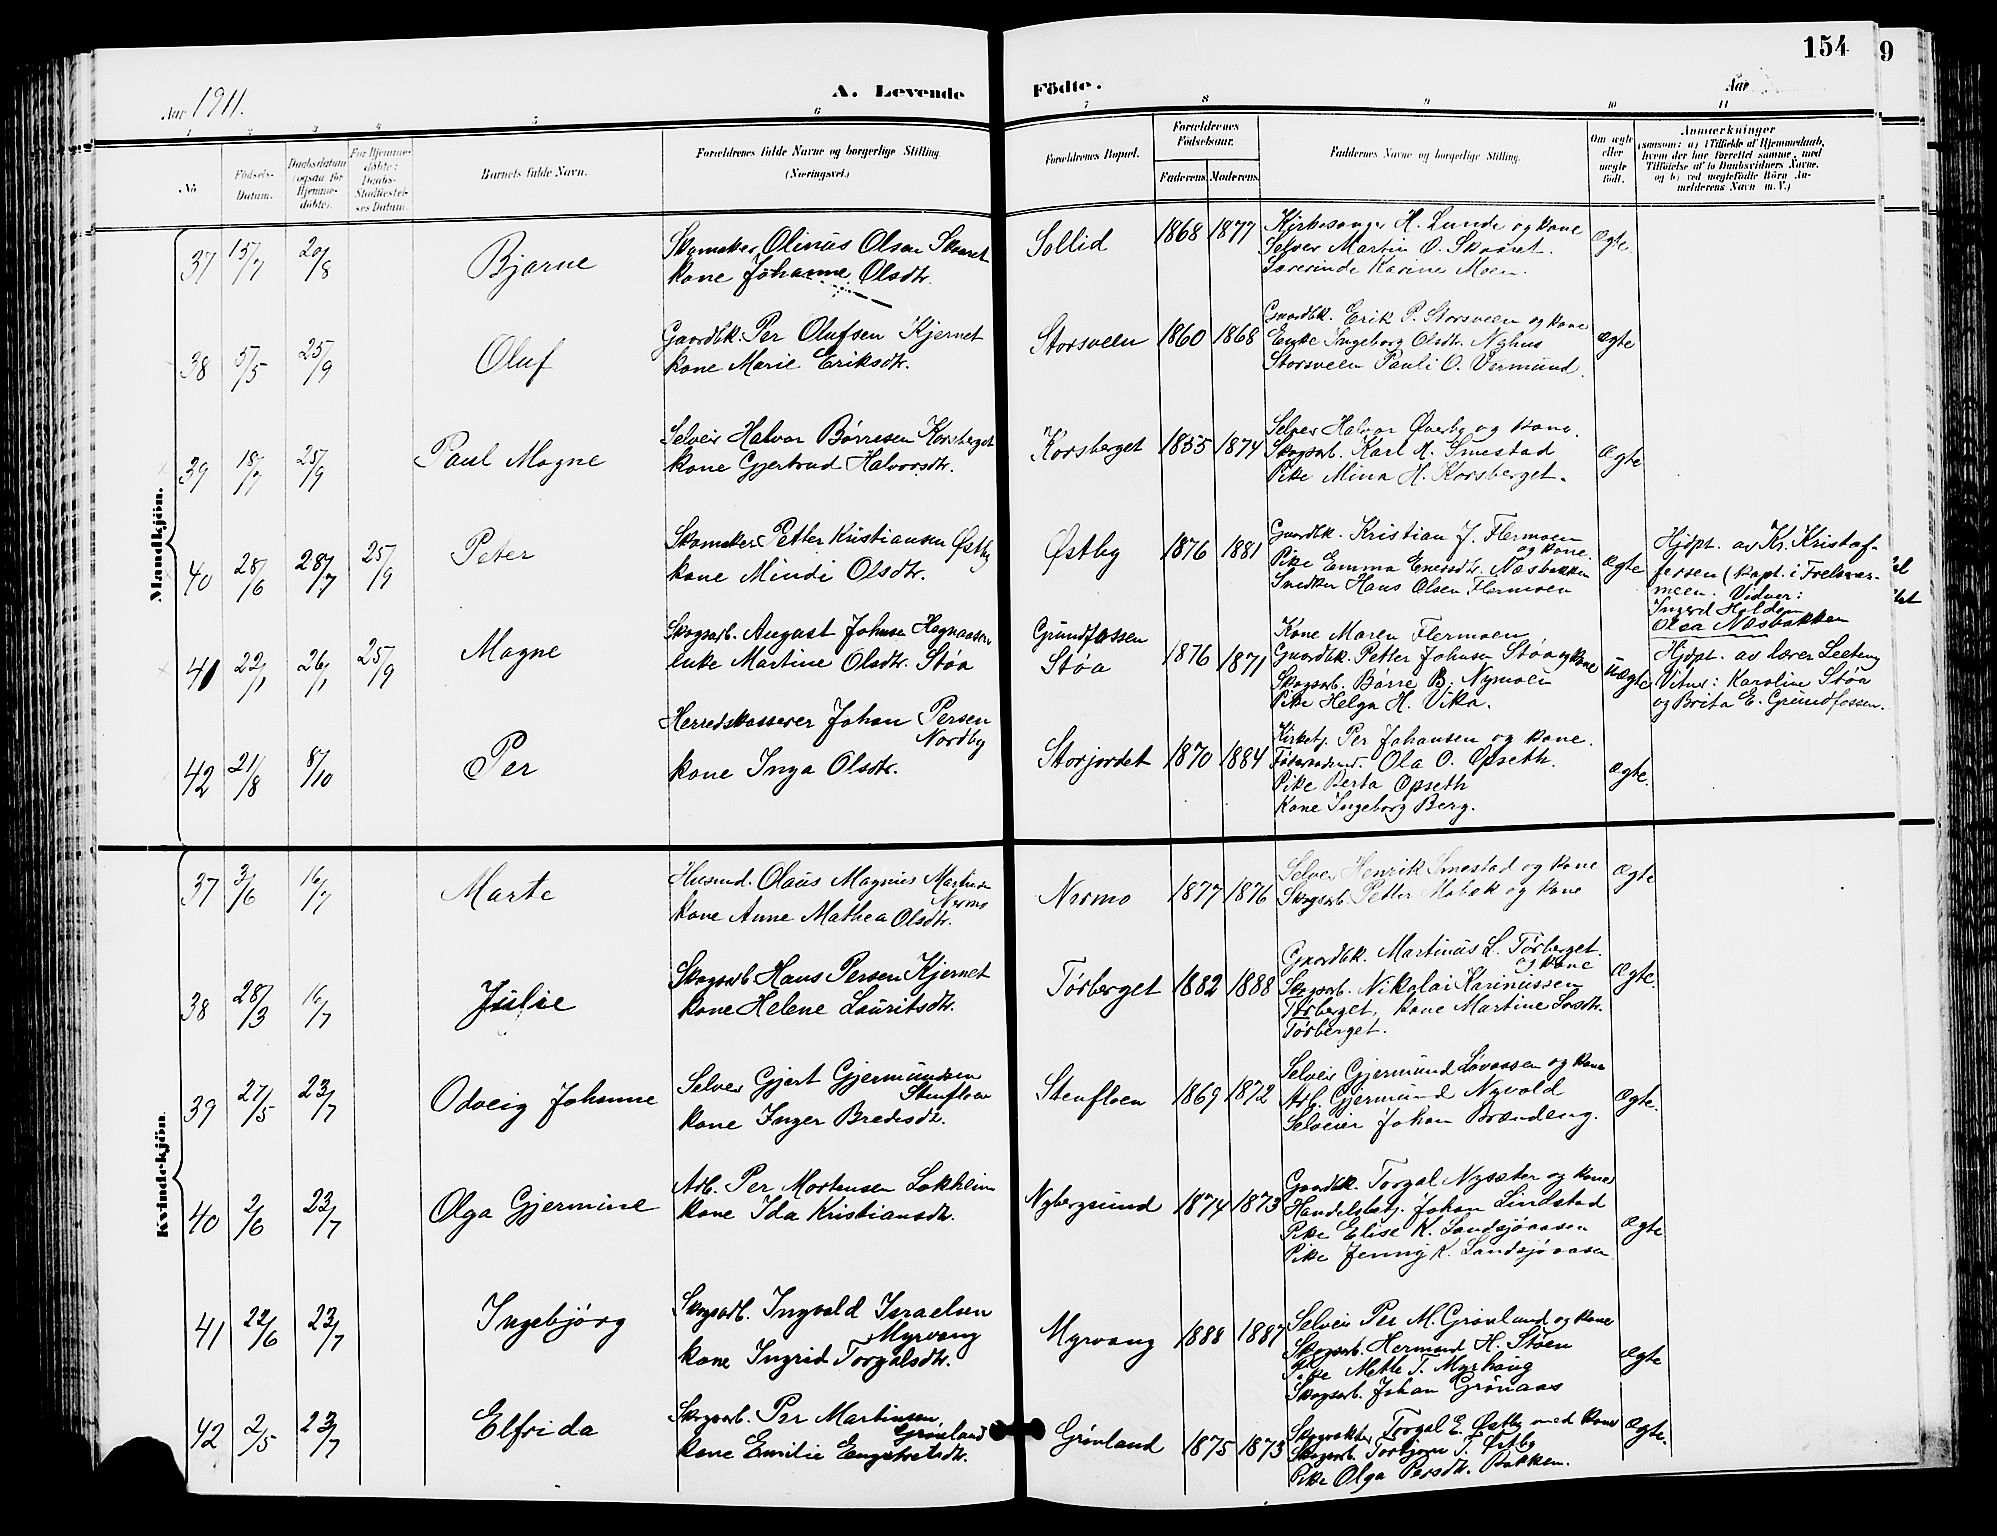 154
9
Aar 1911.
A. Levende
Födte.
Aar
1 2 3 4 5 6 7 8 9 10 11
No
Födsels-Datum.
Daabsdatum (ogsaa for Hjemme-döbte).
For Hjemme-döbte: Daabs-Stadfæstel-ses Datum.
Barnets fulde Navn.
Forældrenes fulde Navne og borgerlige Stilling (Næringsvei.)
Forældrenes Bopæl.
Forældrenes Födselsaar.
Faderens Moderens
Faddernes Navne og borgerlige Stilling.
Om ægte eller uægte födt.
Anmærkninger
(saasom: a) i Tilfælde af Hjemmedaab,
hvem der har forrettet samme, med
Tilföielse af to Daabsvidners Navne.
og b) ved uægtefödte Börn An-
melderens Navn m. V.)
Mandkjön.
37 15/7 20/8 Bjarne
Skomaker Olinus Olsen Skaaret
kone Johanne Olsdtr.
Sollid 1868 1877
Kirkesanger H. Lunde og kone
Selveier Martin O. Skaaret.
Lærerinde Karine Moen.
ægte.
38 5/5 25/9 Oluf
Gaardbk. Per Olufsen Kjernet
kone Marie Eriksdtr.
Storsveen 1860 1868
Gaardbk. Erik P. Storsveen og kone
Enke Ingeborg Olsdtr. Nyhus
Storsveen Pauli O. Vermund.
ægte
39 18/7 25/9 Paul Magne
Selveier Halvor Børresen Korsberget
kone Gjertrud Halvorsdtr.
Korsberget 1855 1874
Selveier Halvor Øverby og kone.
Skogsarb. Karl A. Smestad
Pike Mina H. Korsberget.
ægte
40 28/6 28/7 25/9 Peter
Skomaker Petter Kristiansen Østby
kone Mindi Olsdtr.
Østby 1876 1881
Gaardbk. Kristian J. Flermoen
og kone.
Pike Emma Næsbakken
Snedker Hans Olsen Flermoen
ægte
Hjdpt. av Kr. Kristof-
fersen (kapt. i Frelsesar-
meen. Vidner:
Ingerd Halds
Olea Næsbakken
41 22/1 26/1 25/9 Magne
Skogsarb. August Johnsen
enke Martine Olsdtr. Støa
Grundfossen
Støa
1876 1871
Kone Maren Flermoen
Gaardbk. Petter Johnsen Støa og kone
Skogsarb. Børre B. Nymoen
Pike Helga H. Vika.
uægte
Hjdpt. av lærer Leeteng
Vitner: Karoline Støa
og Brita E. Grundfossen.
42 21/8 8/10 Per
Herredskasserer Johan Persen
Nordby
kone Inga Olsdtr.
Storjordet 1870 1884
Kirketj. Per Johansen og kone.
Ola O. Opseth.
Pike Berta Opseth
Kone Ingeborg Berg.
ægte.
Kvindekjön.
37 3/6 16/7 Marte
Husmd. Olaus Magnus Martinsen
Nermo
kone Anne Mathea Olsdtr.
Nermo 1877 1876
Selveier Henrik Smestad og kone
Skogsarb. Petter Mobæk og kone
ægte
38 28/3 16/7 Julie
Skogsarb Hans Persen Kjernet
kone Helene Lauritsdtr.
Tørberget 1882 1888
Gaardbk. Martinus L. Tørberget.
og kone
Skogsarb. Nikolai Karinussen
Tørberget, kone Martine Larsdtr.
Tørberget.
ægte.
39 27/5 23/7 Odveig Johanne
Selveier Gjert Gjermundsen
Stenfloen
kone Inger Bredesdtr.
Stenfloen 1869 1872
Selveier Gjermund Løvaasen og kone
Arb. Gjermund Nyvold
Selveier Johan Brændeng.
ægte.
40 2/6 23/7 Olga Gjermine
Arb. Per Mortensen Løkheim
kone Ida Kristiansdtr.
Nybergsund 1874 1873
Gaardbk. Torgal Nysæter og kone
Handelsbetj. Johan Lindstad
Pike Elise K. Landsjøaasen
Pike Jenny K. Landsjøaasen.
ægte
41 22/6 23/7 Ingebjørg
Skogsarb. Ingvald Israelsen
Myrvang
kone Ingrid Torgalsdtr.
Myrvang 1888 1887
Selveier Per M. Grønland og kone
Skogsarb. Hermund H. Støen
Pike Mathe T. Myrhaug
Skogsarb. Johan Grønaas
ægte
42 2/5 23/7 Elfrida
Skogsarb. Per Martinsen,
Grønland
kone Emilie Engebretsdtr.
Grønland 1875 1873
Skogvokter Torgal E. Østby med kone
Skogsarb. Torbjørn T. Østby
Pike Olga Persdtr. Bakken.
ægte.